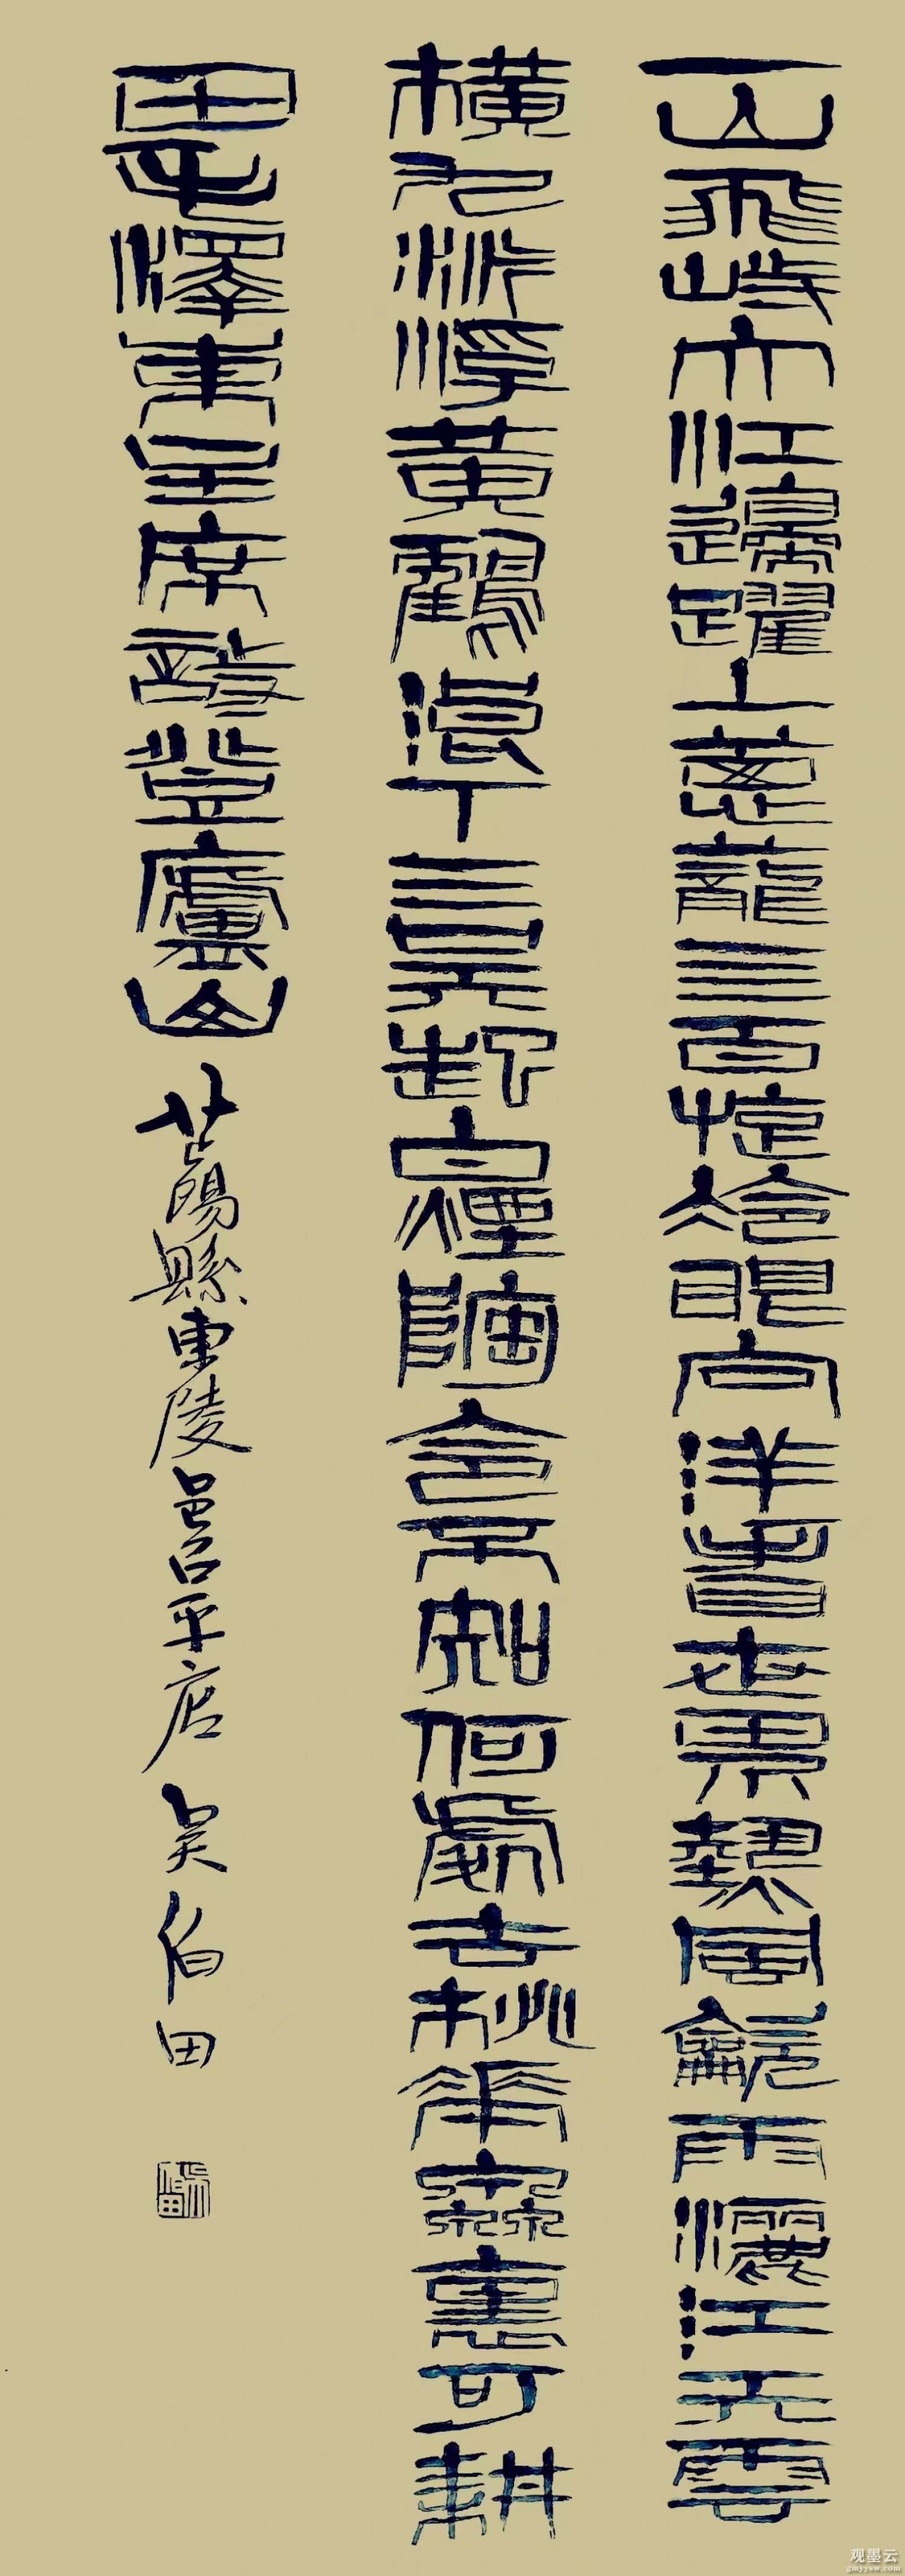 一山飛峙大江邊躍上蔥蘢亖百旋冷眼向洋看世界熱風龡雨灑江天雲
橫九派浮黃鶴浪下三吳起白煙陶令不知何處去桃花源裏可耕
田毛澤東主席詩登廬山 陽縣東陵邑召平店 吴伯田
观墨云
gmyysw.com